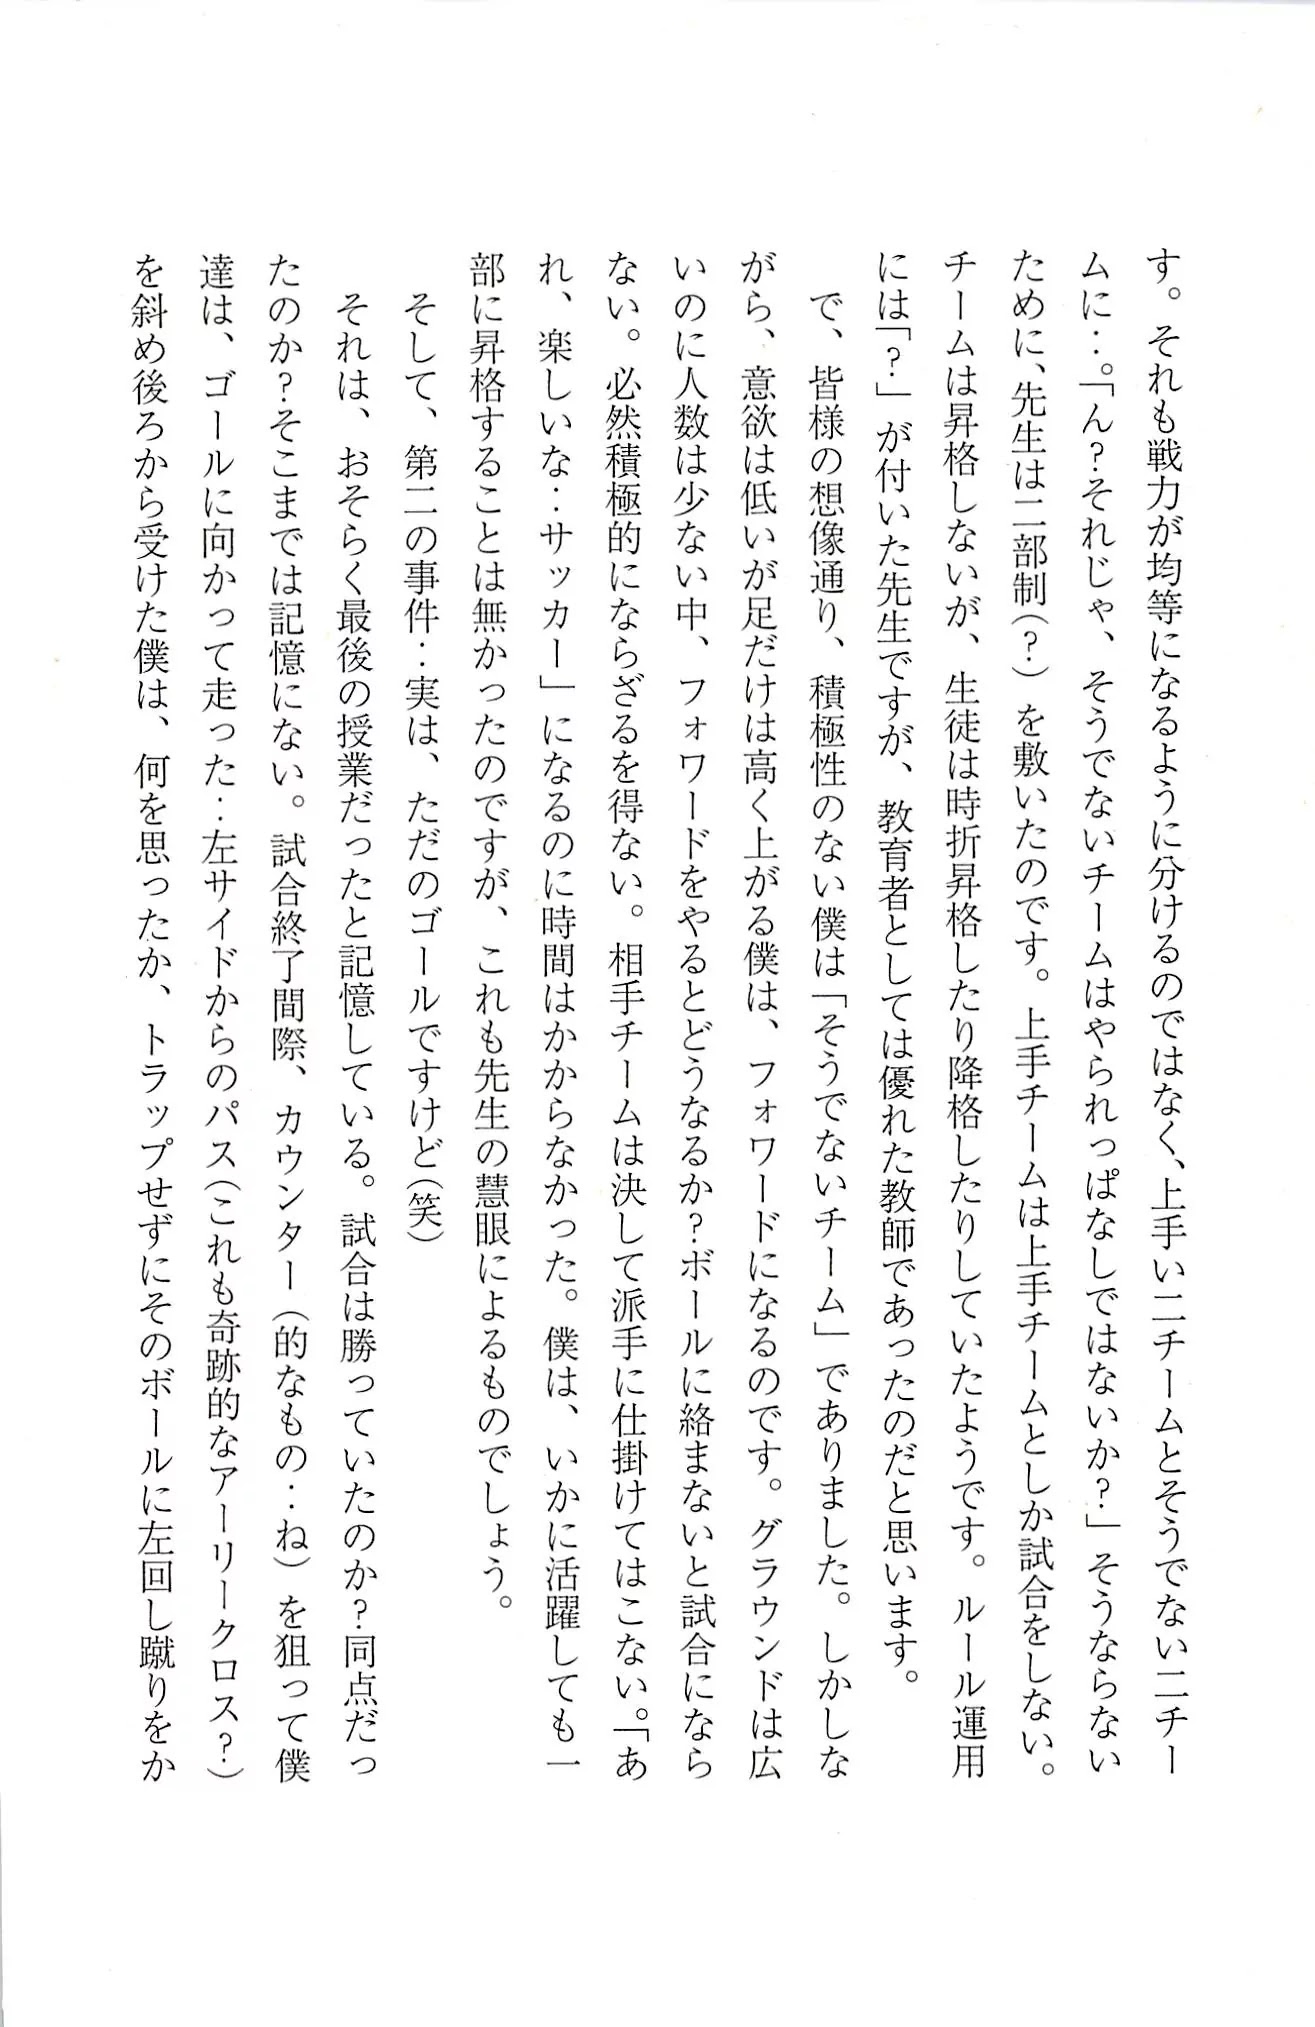 す。それも戦力が均等になるように分けるのではなく、上手い二チームとそうでない二チー
ムに‥。「ん？それじゃ、そうでないチームはやられっぱなしではないか？」そうならない
ために、先生は二部制（？）を敷いたのです。上手チームは上手チームとしか試合をしない。
チームは昇格しないが、生徒は時折昇格したり降格したりしていたようです。ルール運用
には「？」が付いた先生ですが、教育者としては優れた教師であったのだと思います。
　で、皆様の想像通り、積極性のない僕は「そうでないチーム」でありました。しかしな
がら、意欲は低いが足だけは高く上がる僕は、フォワードになるのです。グラウンドは広
いのに人数は少ない中、フォワードをやるとどうなるか？ボールに絡まないと試合になら
ない。必然積極的にならざるを得ない。相手チームは決して派手に仕掛けてはこない。「あ
れ、楽しいな‥サッカー」になるのに時間はかからなかった。僕は、いかに活躍しても一
部に昇格することは無かったのですが、これも先生の慧眼によるものでしょう。
　そして、第二の事件‥実は、ただのゴールですけど（笑）
　それは、おそらく最後の授業だったと記憶している。試合は勝っていたのか？同点だっ
たのか？そこまでは記憶にない。試合終了間際、カウンター（的なもの‥ね）を狙って僕
達は、ゴールに向かって走った‥左サイドからのパス（これも奇跡的なアーリークロス？）
を斜め後ろから受けた僕は、何を思ったか、トラップせずにそのボールに左回し蹴りをか